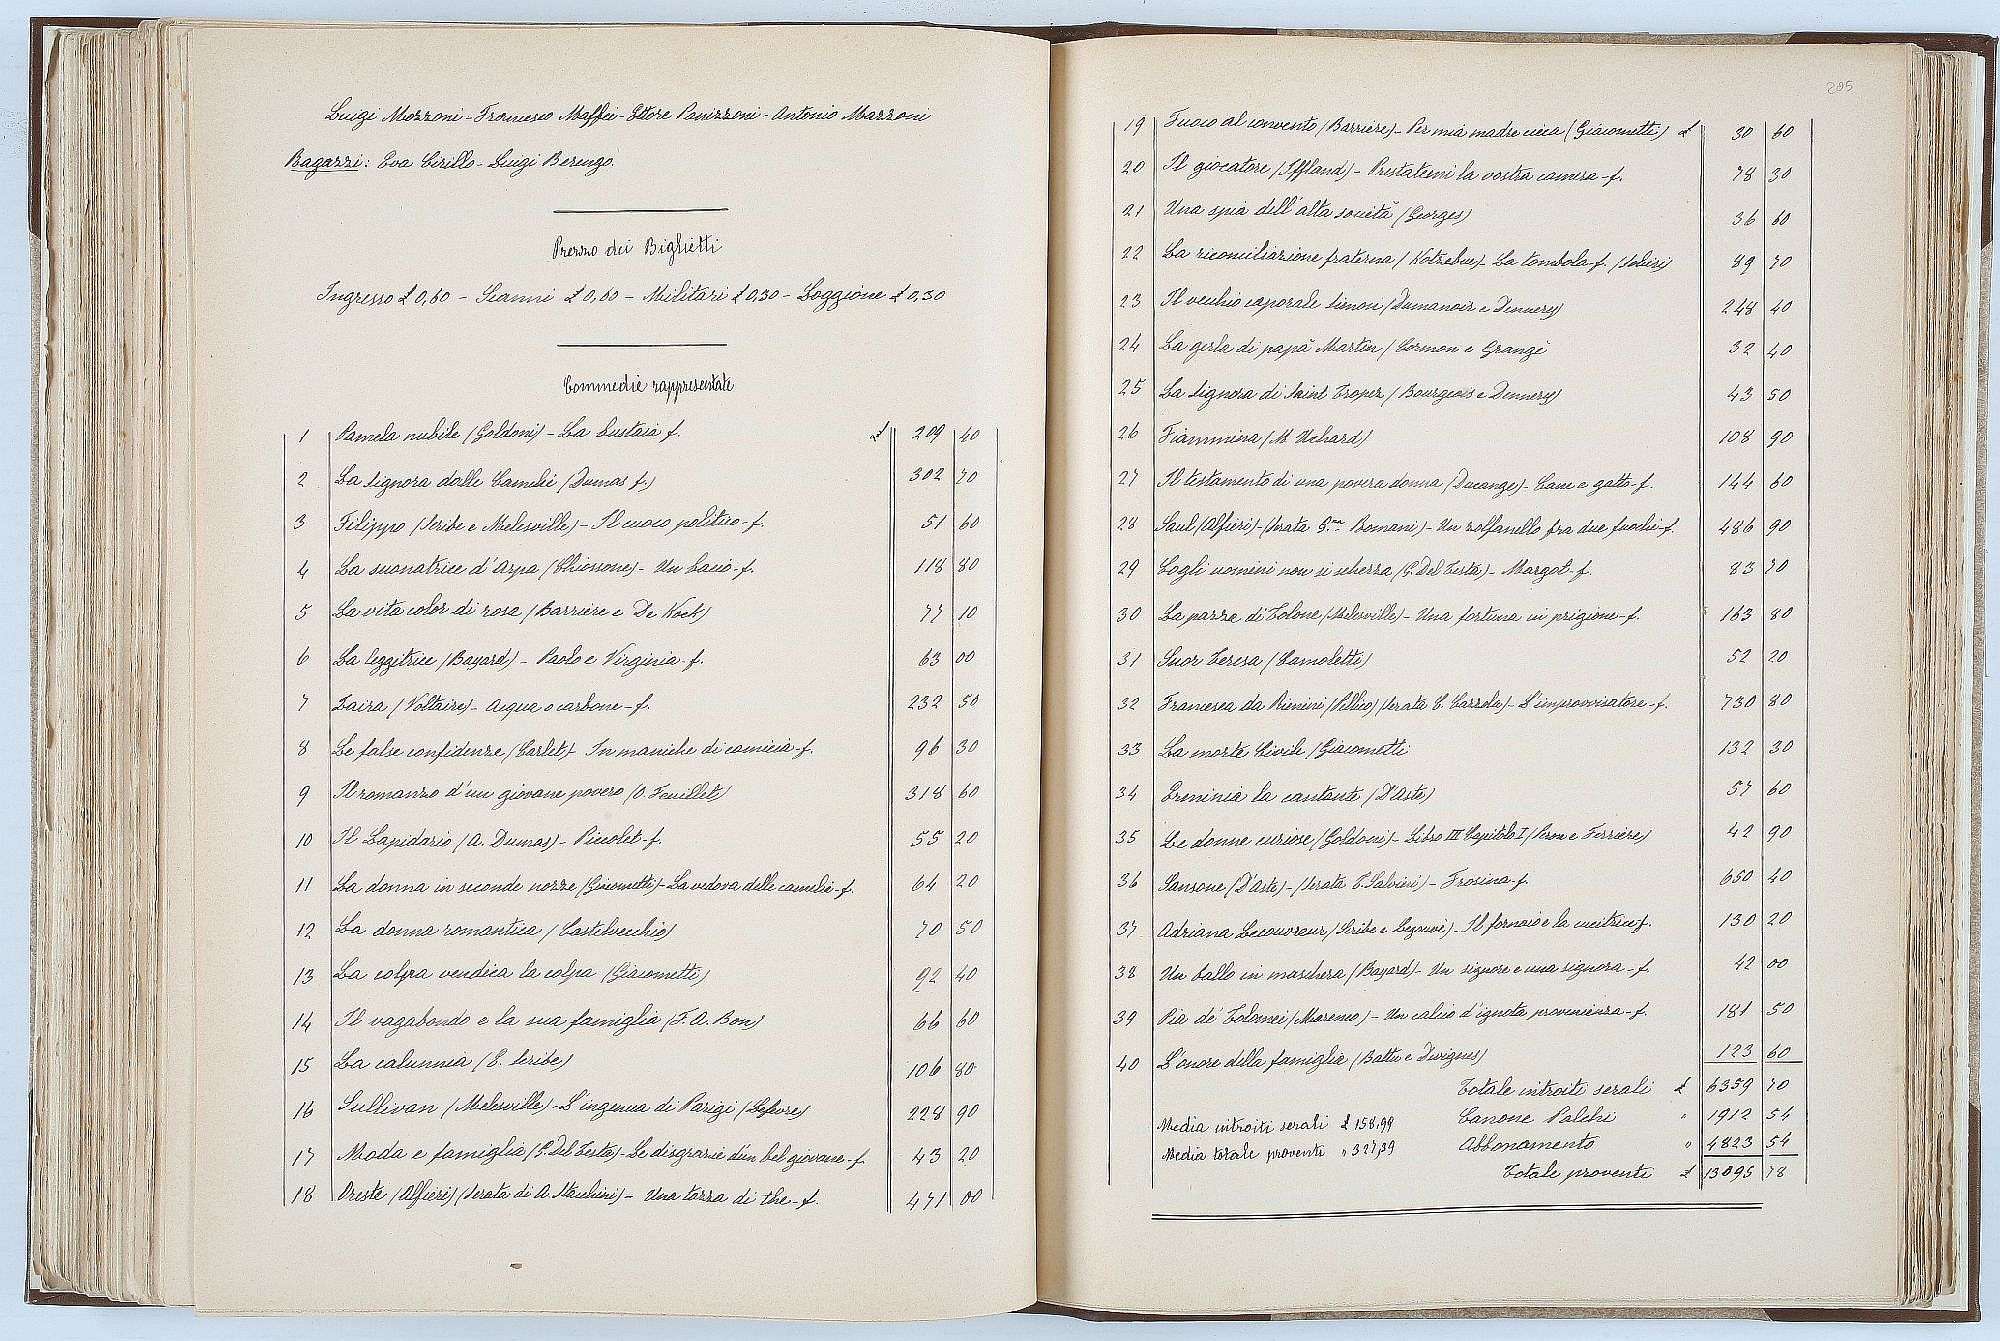 Luigi Mozzoni - Francesco Maffei - Ettore Panizzoni - Antonio Mazzoni
Ragazzi: Eva Cirillo - Luigi Berengo.
Prezzo dei Biglietti
Ingresso £ 0,60 - Scanni £ 0,60 - Militari £ 0,30 - Loggione £ 0,30
Commedie rappresentate
1 Pamela nubile (Goldoni) - La bustaia f. £ 209 40
2 La signora dalle Camelie (Dumas f.) 302 70
3 Filippo (Scribe e Melesville) - Il cuoco politico - f. 51 60
4 La suonatrice d'Arpa (Chiossone) - Un bacio - f. 118 80
5 La vita color di rosa (Barrière e De Kock) 77 10
6 La leggitrice (Bayard) - Paolo e Virginia - f. 63 00
7 Zaira (Voltaire) - Acqua o carbone - f. 232 50
8 Le false confidenze (Carlet) - In maniche di camicia - f. 96 30
9 Il romanzo d'un giovane povero (O. Feuillet) 318 60
10 Il Lapidario (A. Dumas) - Piccolet - f. 55 20
11 La donna in seconde nozze (Giacometti) - La vedova delle camelie - f. 64 20
12 La donna romantica (Castelvecchio) 70 50
13 La colpa vendica la colpa (Giacometti) 92 40
14 Il vagabondo e la sua famiglia (F. A. Bon) 66 60
15 La calunnia (E. Scribe) 106 80
16 Sullivan (Melesville) - L'ingenua di Parigi (Lefevre) 228 90
17 Moda e famiglia (G. Del Testa) - Le disgrazie d'un bel giovane - f. 43 20
18 Oreste (Alfieri) (Serata di A. Stacchini) - Una tazza di the - f. 471 00
205
19 Fuoco al convento (Barrière) - Per mia madre cieca (Giacometti) £ 30 60
20 Il giocatore (Iffland) - Prestatemi la vostra camera - f. 78 30
21 Una spia dell'alta società (Georges) 36 60
22 La riconciliazione fraterna (Kotzebue) - La tombola - f. 89 70
23 Il vecchio caporale Simon (Dumanoir e Dennery) 248 40
24 La gerla di papà Martin (Cormon e Grangè 32 40
25 La Signora di Saint Tropez (Bourgeois e Dennery) 43 50
26 Fiammina (M. Uchard) 108 90
27 Il testamento di una povera donna (Ducange) - Cane e gatto - f. 144 60
28 Saul (Alfieri) - (Serata G.ma Romani) - Un zolfanello fra due fuochi - f. 486 90
29 Cogli uomini non si scherza (G. Del Testa) - Margot - f. 83 70
30 La pazza di Tolone (Melesville) - Una fortuna in prigione - f. 163 80
31 Suor Teresa (Camoletti) 52 20
32 Francesca da Rimini (Pellico) (Serata C. Cazzola) - L'improvvisatore - f. 730 80
33 La morte Civile (Giacometti 132 30
34 Erminia la cantante (D'Aste) 57 60
35 Le donne curiose (Goldoni) - Libro III Capitolo I 42 90
36 Sansone (D'Aste) - (Serata T. Salvini) - Frosina - f. 650 40
37 Adriana Lecouvreur (Scribe e Legouvé) - Il fornaio e la cucitrice - f. 130 20
38 Un ballo in maschera (Bayard) - Un signore e una signora - f. 42 00
39 Pia de' Tolomei (Marenco) - Un calcio d'ignota provenienza - f. 181 50
40 L'onore della famiglia (Battu e Desvignes) 123 60
Totale introiti serali £ 6359 70
Media introiti serali £ 158,99 Canone Palchi " 1912 54
Media totale proventi " 327,39 Abbonamento " 4823 54
Totale proventi £ 13095 78